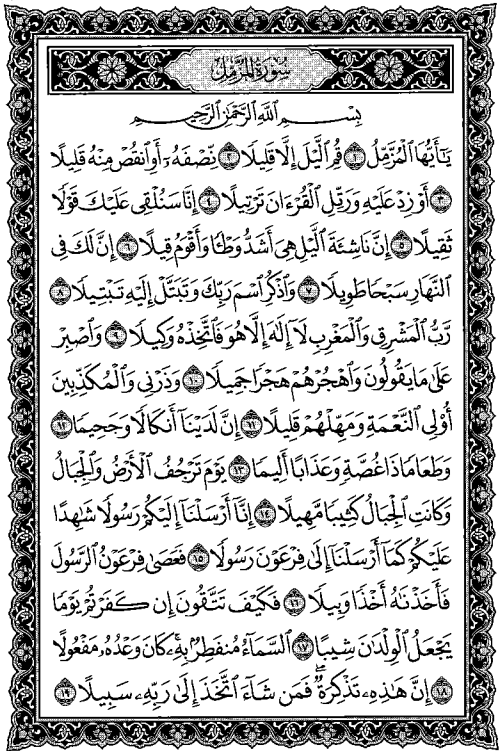 سُورَةُ المُزَّمِّلِ
بِسْمِ اللَّهِ الرَّحْمَٰنِ الرَّحِيمِ
يَٰٓأَيُّهَا الْمُزَّمِّلُ ١ قُمِ الَّيْلَ إِلَّا قَلِيلًا ٢ نِّصْفَهُۥٓ أَوِ انقُصْ مِنْهُ قَلِيلًا
٣ أَوْ زِدْ عَلَيْهِ وَرَتِّلِ الْقُرْءَانَ تَرْتِيلًا ٤ إِنَّا سَنُلْقِى عَلَيْكَ قَوْلًا
ثَقِيلًا ٥ إِنَّ نَاشِئَةَ الَّيْلِ هِىَ أَشَدُّ وَطْـًٔا وَأَقْوَمُ قِيلًا ٦ إِنَّ لَكَ فِى
النَّهَارِ سَبْحًا طَوِيلًا ٧ وَاذْكُرِ اسْمَ رَبِّكَ وَتَبَتَّلْ إِلَيْهِ تَبْتِيلًا ٨
رَّبُّ الْمَشْرِقِ وَالْمَغْرِبِ لَآ إِلَٰهَ إِلَّا هُوَ فَاتَّخِذْهُ وَكِيلًا ٩ وَاصْبِرْ
عَلَىٰ مَا يَقُولُونَ وَاهْجُرْهُمْ هَجْرًا جَمِيلًا ١٠ وَذَرْنِى وَالْمُكَذِّبِينَ
أُو۟لِى النَّعْمَةِ وَمَهِّلْهُمْ قَلِيلًا ١١ إِنَّ لَدَيْنَآ أَنكَالًا وَجَحِيمًا ١٢
وَطَعَامًا ذَا غُصَّةٍ وَعَذَابًا أَلِيمًا ١٣ يَوْمَ تَرْجُفُ الْأَرْضُ وَالْجِبَالُ
وَكَانَتِ الْجِبَالُ كَثِيبًا مَّهِيلًا ١٤ إِنَّآ أَرْسَلْنَآ إِلَيْكُمْ رَسُولًا شَٰهِدًا
عَلَيْكُمْ كَمَآ أَرْسَلْنَآ إِلَىٰ فِرْعَوْنَ رَسُولًا ١٥ فَعَصَىٰ فِرْعَوْنُ الرَّسُولَ
فَأَخَذْنَٰهُ أَخْذًا وَبِيلًا ١٦ فَكَيْفَ تَتَّقُونَ إِن كَفَرْتُمْ يَوْمًا
يَجْعَلُ الْوِلْدَٰنَ شِيبًا ١٧ السَّمَآءُ مُنفَطِرٌۢ بِهِۦ ۚ كَانَ وَعْدُهُۥ مَفْعُولًا
١٨ إِنَّ هَٰذِهِۦ تَذْكِرَةٌ ۖ فَمَن شَآءَ اتَّخَذَ إِلَىٰ رَبِّهِۦ سَبِيلًا ١٩